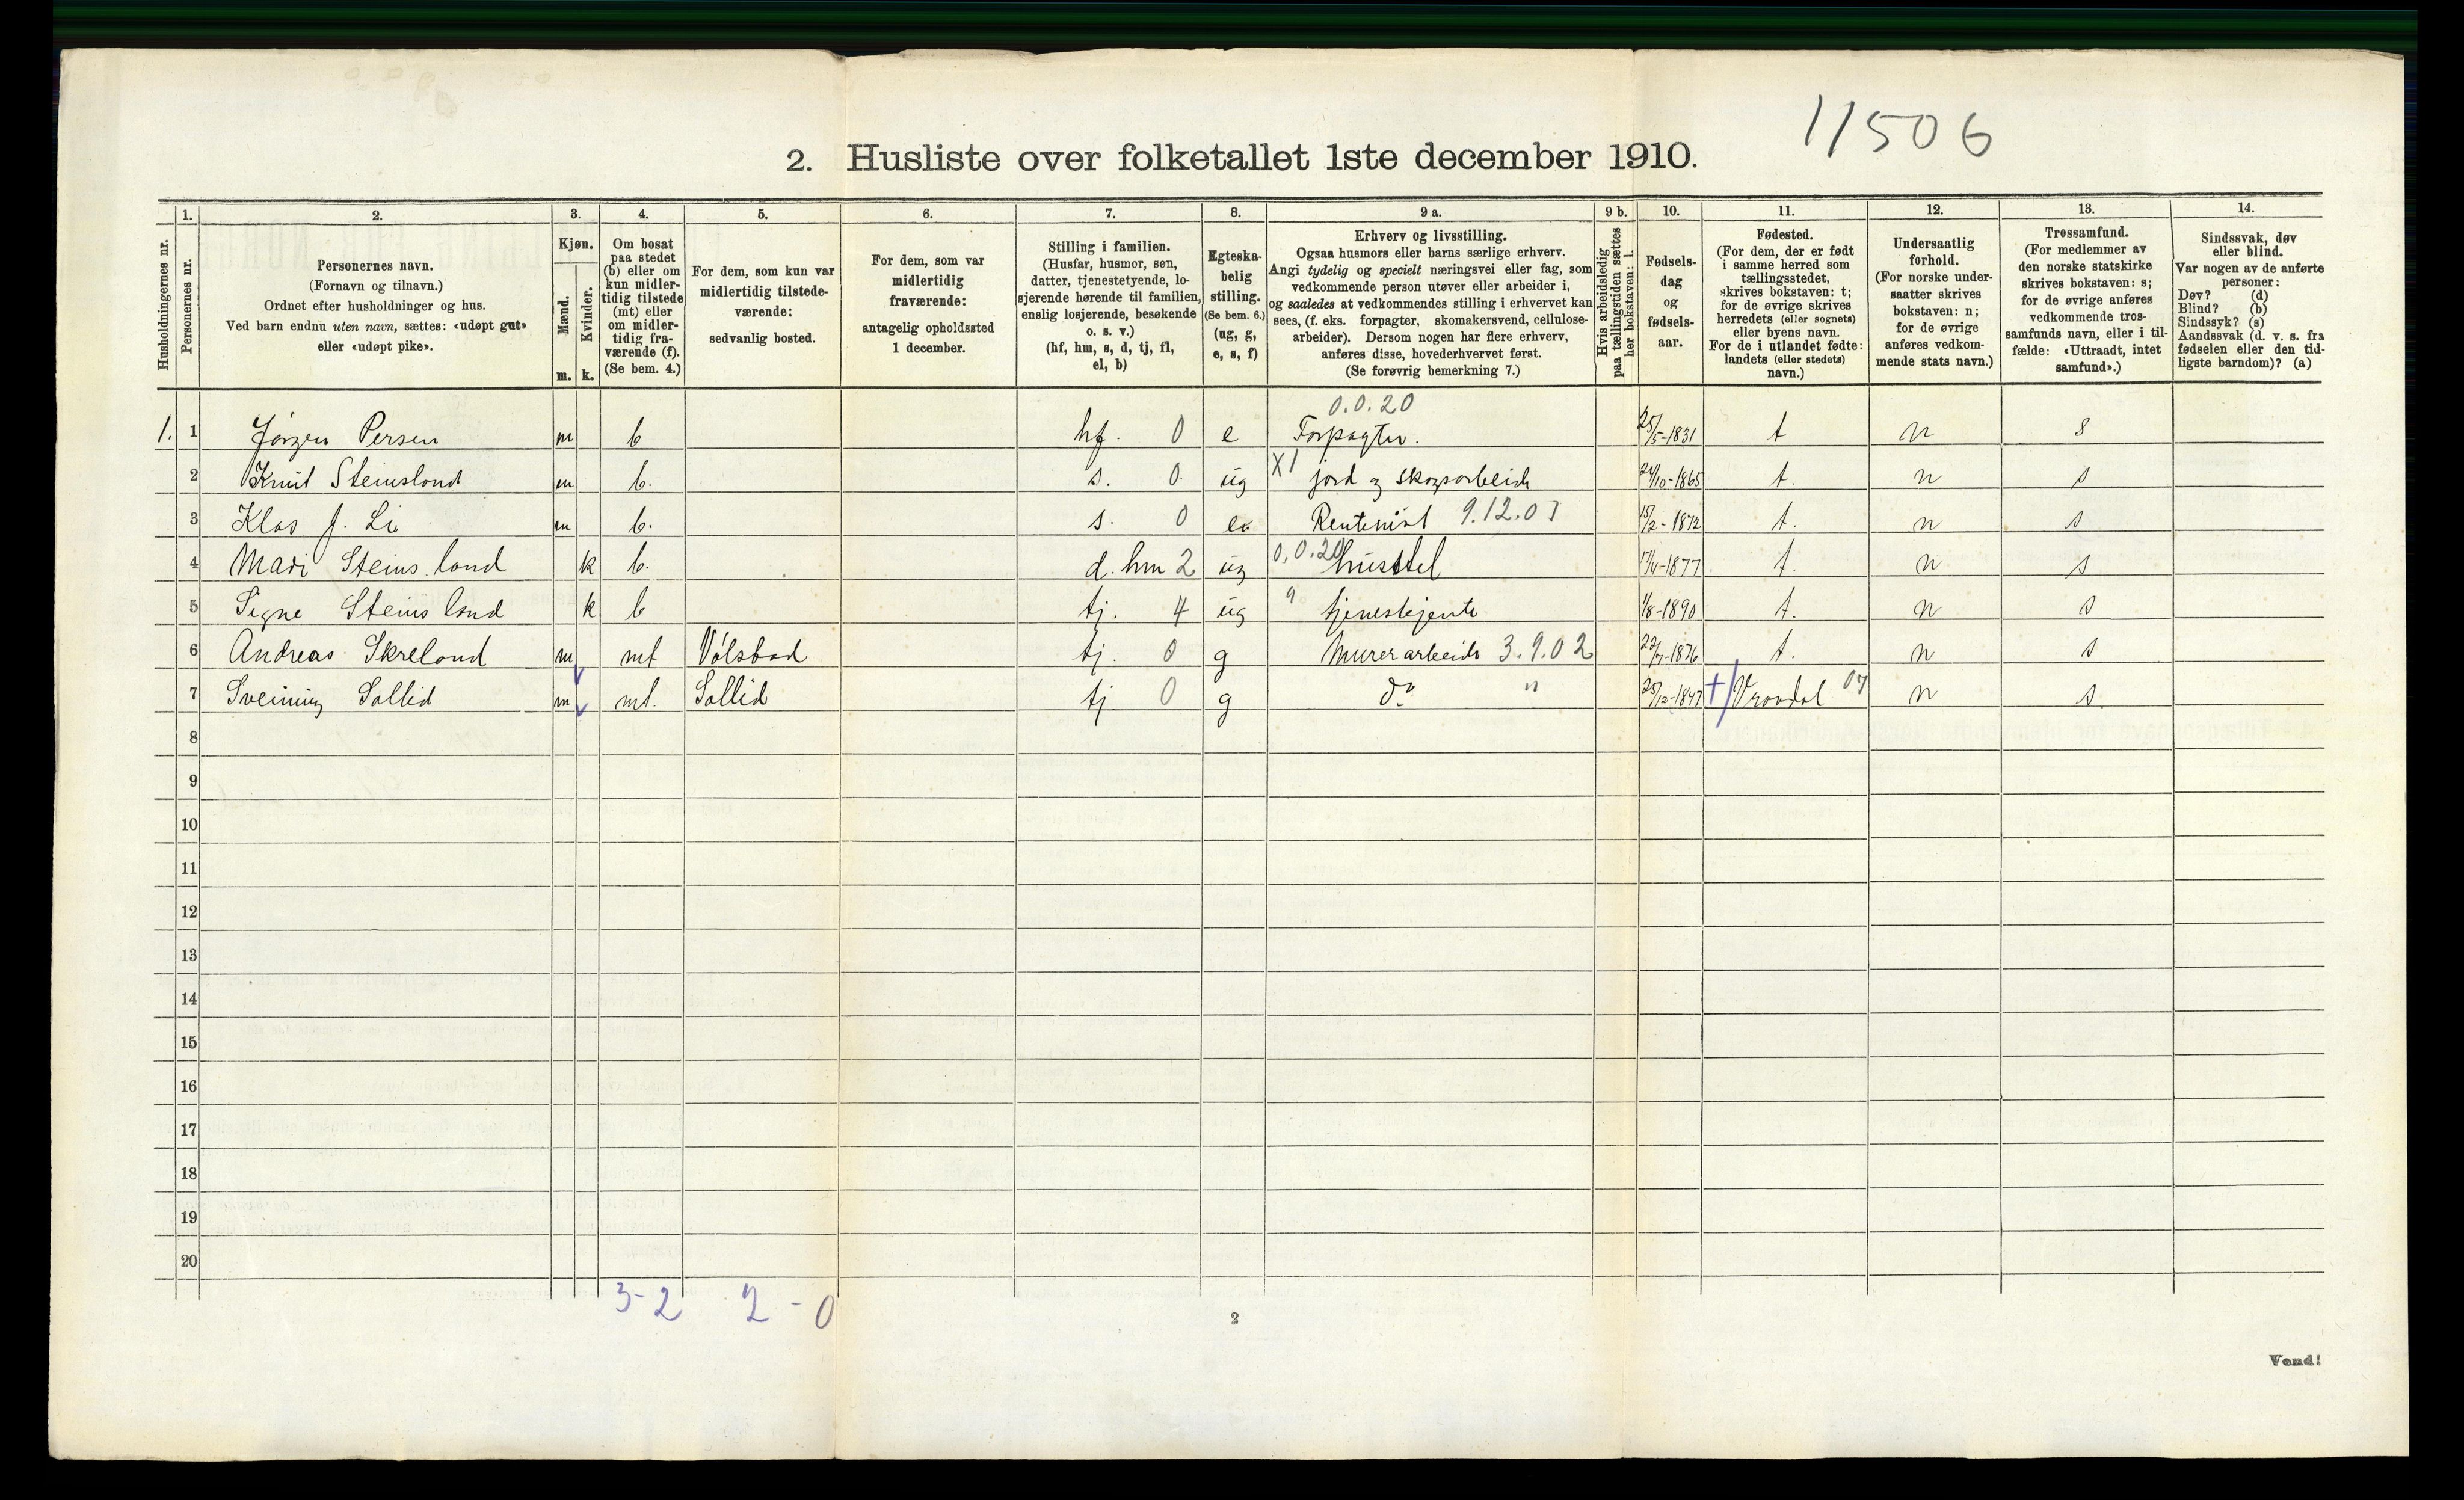 11506
2. Husliste over folketallet 1ste december 1910.
1. 2. 3. 4. 5. 6. 7. 8. 9 a. 9 b. 10. 11. 12. 13. 14.
Husholdningernes nr.
Personernes nr.
Personernes navn.
(Fornavn og tilnavn.)
Ordnet efter husholdninger og hus.
Ved barn endnu uten navn, sættes: «udøpt gut»
eller «udøpt pike».
Kjøn.
Mænd.
Kvinder.
m. k.
Om bosat
paa stedet
(b) eller om
kun midler-
tidig tilstede
(mt) eller
om midler-
tidig fra-
værende (f).
(Se bem. 4.)
For dem, som kun var
midlertidig tilstede-
værende:
sedvanlig bosted.
For dem, som var
midlertidig
fraværende:
antagelig opholdssted
1 december.
Stilling i familien.
(Husfar, husmor, søn,
datter, tjenestetyende, lo-
sjerende hørende til familien,
enslig losjerende, besøkende
o. s. v.)
(hf, hm, s, d, tj, fl,
el, b)
Egteska-
belig
stilling.
(Se bem. 6.)
(ug, g,
e, s, f)
Erhverv og livsstilling.
Ogsaa husmors eller barns særlige erhverv.
Angi tydelig og specielt næringsvei eller fag, som
vedkommende person utøver eller arbeider i,
og saaledes at vedkommendes stilling i erhvervet kan
sees, (f. eks. forpagter, skomakersvend, cellulose-
arbeider). Dersom nogen har flere erhverv,
anføres disse, hovederhvervet først.
(Se forøvrig bemerkning 7.)
Hvis arbeidsledig
paa tællingstiden sættes
her bokstaven: l.
Fødsels-
dag
og
fødsels-
aar.
Fødested.
(For dem, der er født
i samme herred som
tællingsstedet,
skrives bokstaven: t;
for de øvrige skrives
herredets (eller sognets)
eller byens navn.
For de i utlandet fødte:
landets (eller stedets)
navn.)
Undersaatlig
forhold.
(For norske under-
saatter skrives
bokstaven: n;
for de øvrige
anføres vedkom-
mende stats navn.)
Trossamfund.
(For medlemmer av
den norske statskirke
skrives bokstaven: s;
for de øvrige anføres
vedkommende tros-
samfunds navn, eller i til-
fælde: «Uttraadt, intet
samfund».)
Sindssvak, døv
eller blind.
Var nogen av de anførte
personer:
Døv? (d)
Blind? (b)
Sindssyk? (s)
Aandssvak (d. v. s. fra
fødselen eller den tid-
ligste barndom)? (a)
0.0.20
1. 1 Jørgen Persen m b hf. 0 e Forpagter. 25/5-1831 t n s
2 Knut Steinsland m b. s. 0 ug X1 jord og skogsarbeide 24/10-1865 t. n s
3 Klas J. Li m b. s. 0 e. Rentenist 9.12.07 15/2-1872 t. n s
4 Mari Steinsland k b. d. hm 2 ug 0.0.20 husstel 17/4-1877 t. n s
5 Signe Steinsland k b tj. 4 ug " tjenestejente 1/8-1890 t. n s
6 Andreas Skreland m mt Vålsbad tj. 0 g Murerarbeide 3.9.02 22/7-1876 t. n s
7 Sveinung Sollid m mt. Sollid tj 0 g do " 25/12-1847 Vraadal 07 n s.
8
9
10
11
12
13
14
15
16
17
18
19
20
3-2 2-0
2
Vend!